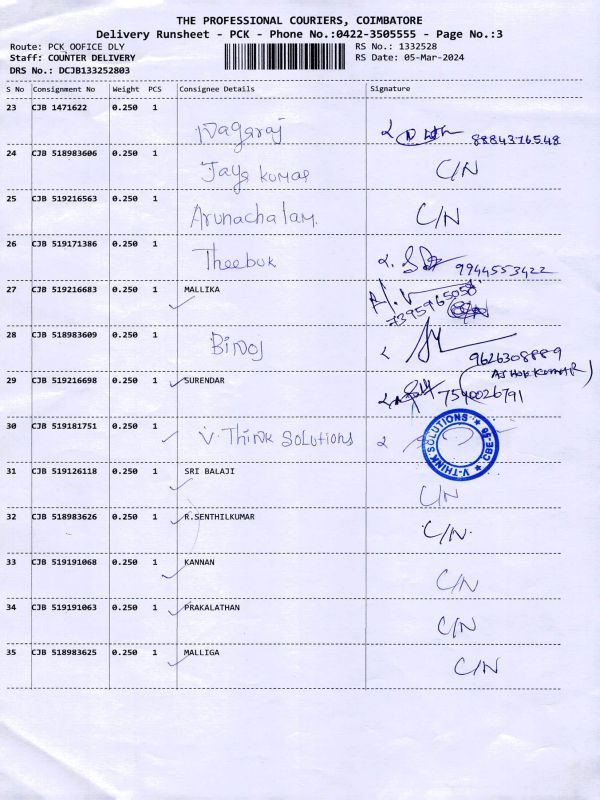 THE PROFESSIONAL COURIERS, COIMBATORE
Delivery Runsheet - PCK - Phone No.:0422-3505555 - Page No.:3
Route: PCK OOFICE DLY RS No.: 1332528
Staff: COUNTER DELIVERY RS Date: 05-Mar-2024
DRS No.: DCJB133252803
S No Consignment No Weight PCS Consignee Details Signature
23 CJB 1471622 0.250 1
Nagaraj 8884376548
24 CJB 518983606 0.250 1
Jaya Kumar C/N
25 CJB 519216563 0.250 1
Arunachalam. C/N
26 CJB 519171386 0.250 1
Theebuk 9944553422
27 CJB 519216683 0.250 1 MALLIKA
7395965058
C/N
28 CJB 518983609 0.250 1
Binoj 9626308889
(ASHOK KUMAR)
29 CJB 519216698 0.250 1 SURENDAR
7540026791
30 CJB 519181751 0.250 1
V. Think Solutions V-THINK SOLUTIONS ★ CBE-35 ★
31 CJB 519126118 0.250 1 SRI BALAJI
C/N
32 CJB 518983626 0.250 1 R.SENTHILKUMAR
C/N.
33 CJB 519191068 0.250 1 KANNAN
C/N
34 CJB 519191063 0.250 1 PRAKALATHAN
C/N
35 CJB 518983625 0.250 1 MALLIGA
C/N